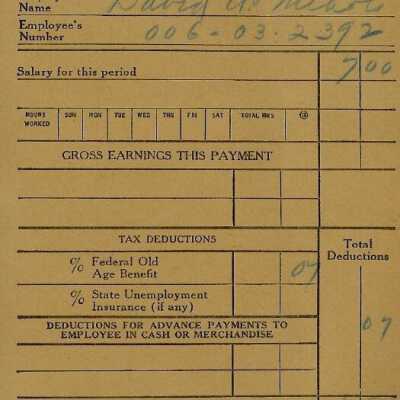 Name David
Employee's
Number 006-03-2392
Salary for this period 7 00
HOURS WORKED SUN MON TUE WED THU FRI SAT TOTAL HRS @
GROSS EARNINGS THIS PAYMENT
TAX DEDUCTIONS
Total
Deductions
% Federal Old
Age Benefit 07
% State Unemployment
Insurance (if any)
07
DEDUCTIONS FOR ADVANCE PAYMENTS TO
EMPLOYEE IN CASH OR MERCHANDISE